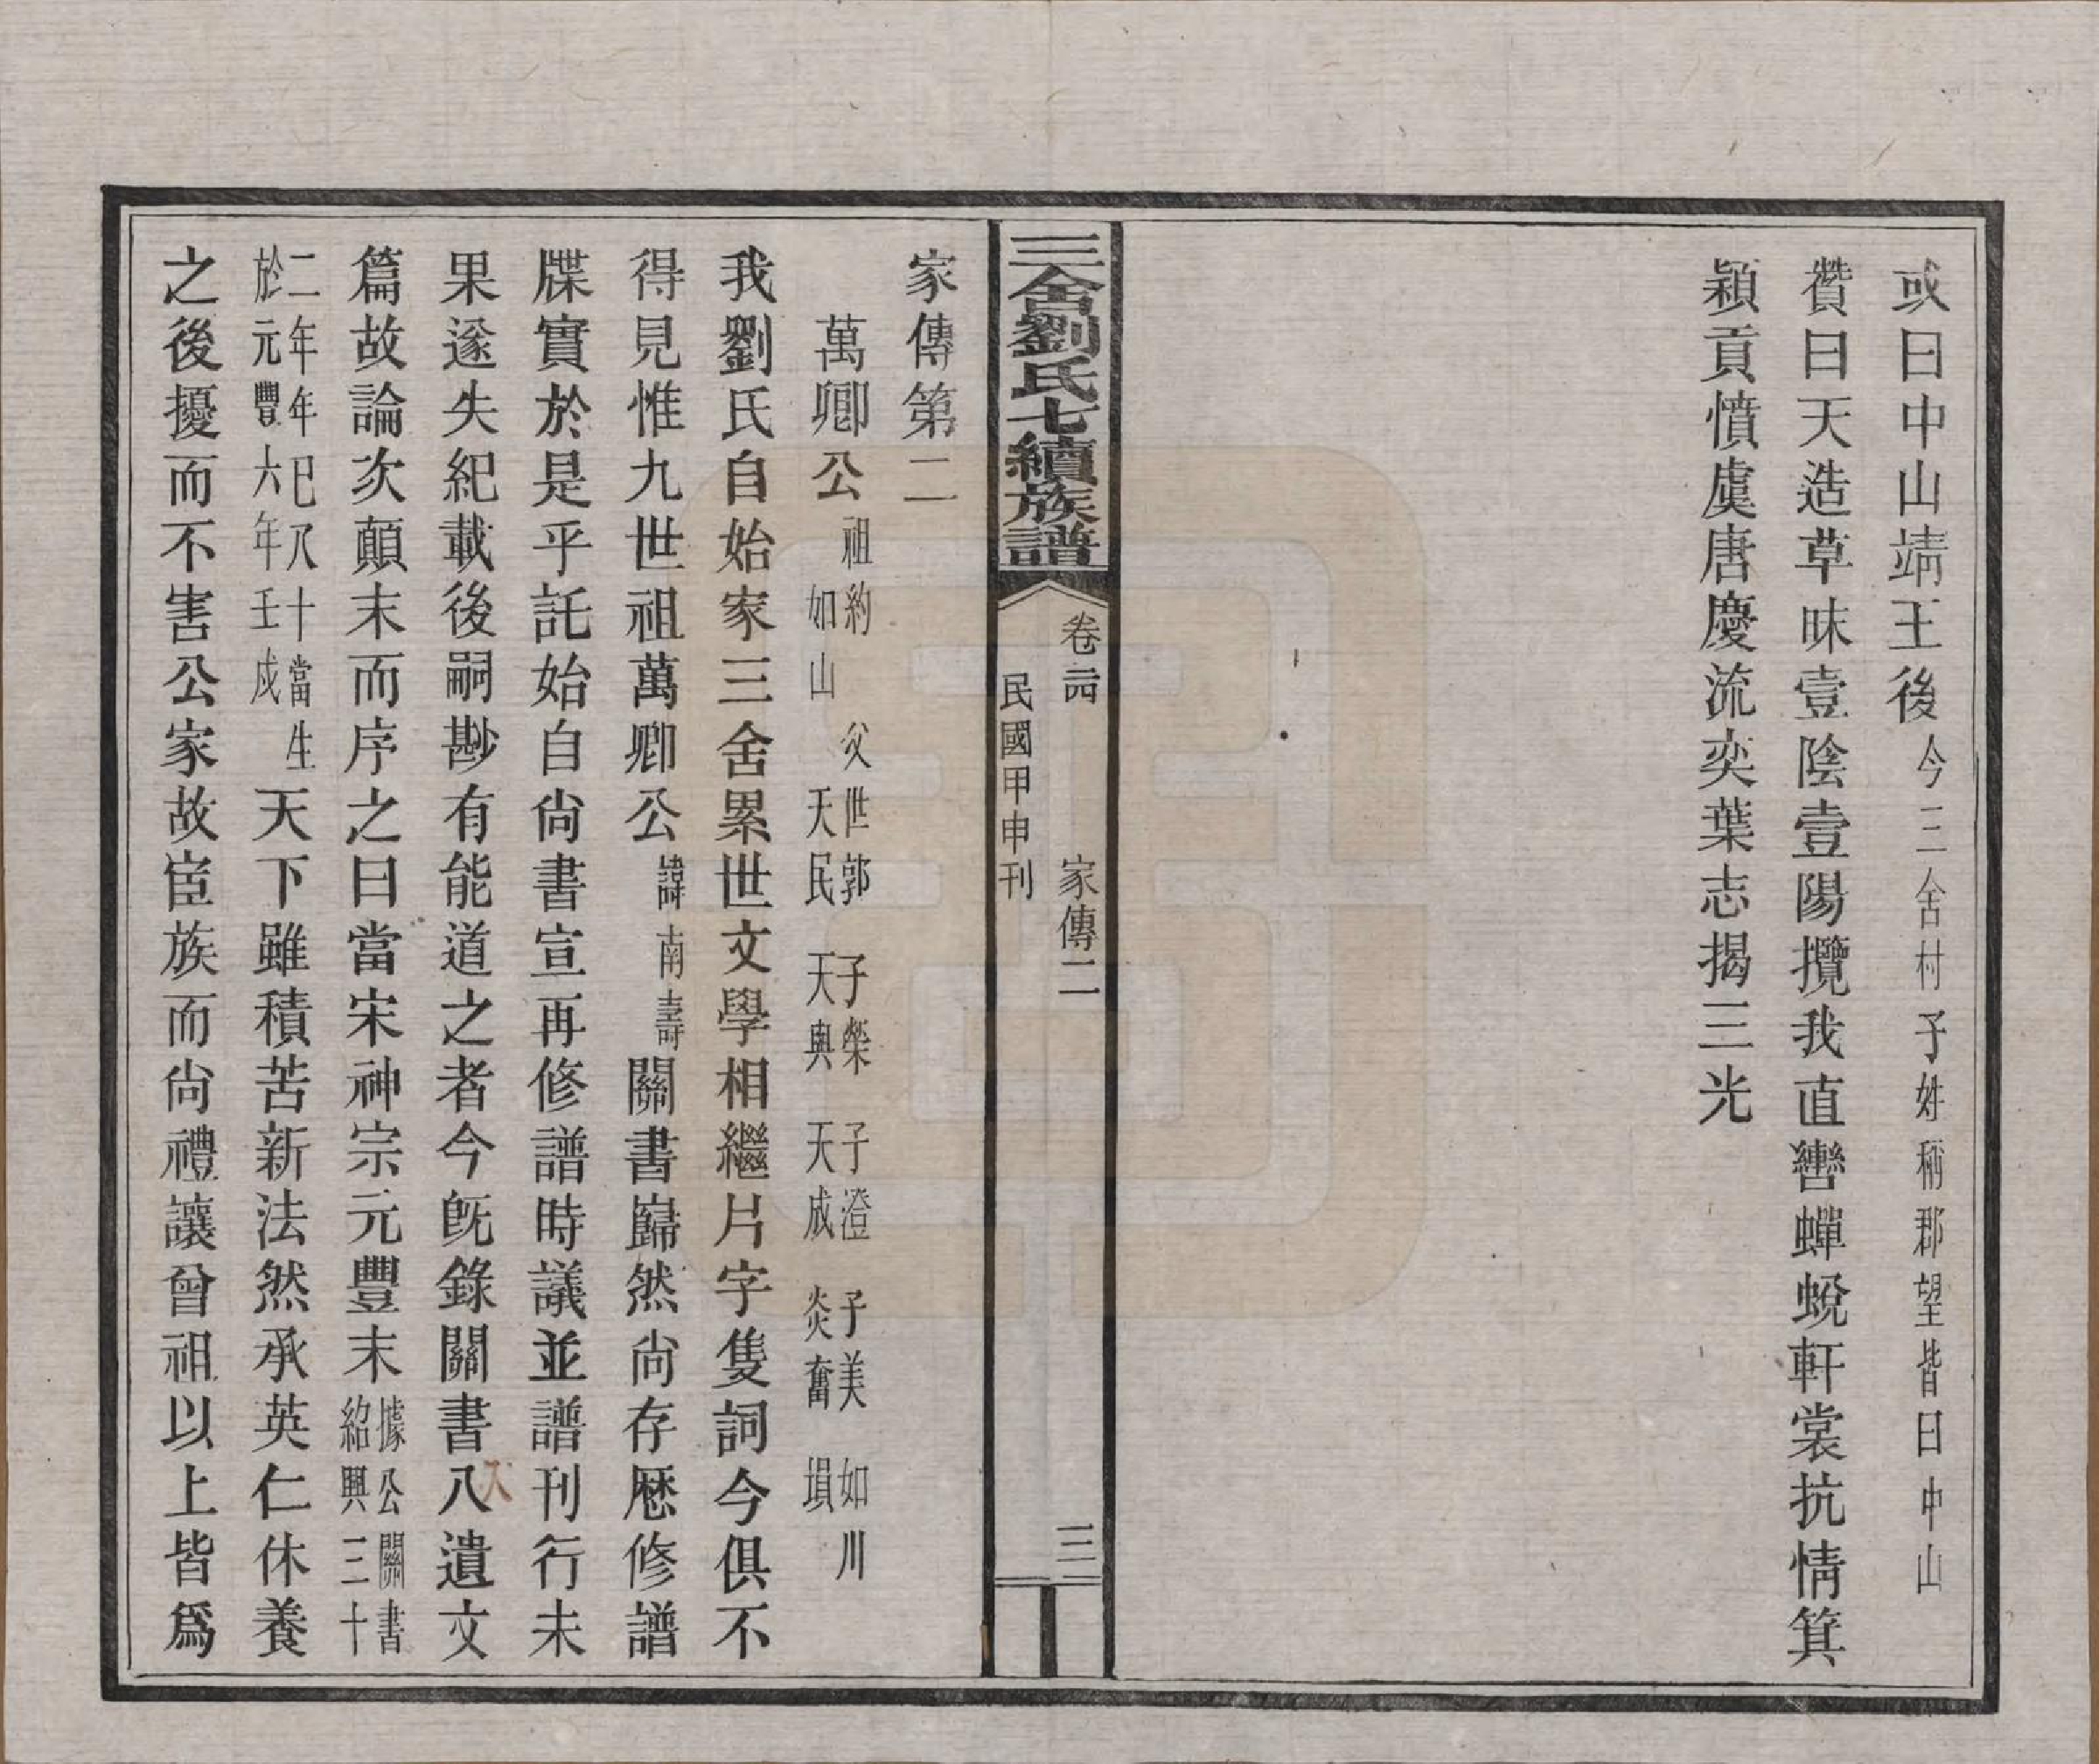 或曰中山靖王後今三舍村子姓稱郡望皆曰中山
贊曰天造草昧壹陰壹陽攬我直轡蟬蛻軒裳抗情箕
潁貢憤虞唐慶流奕葉志揭三光
三舍劉氏七續族譜
卷二四 家傳二 三
民國甲申刊
家傳第二
萬卿公祖約 父世郭 子榮 子澄 子美 如川
如山 天民 天與 天成 炎奮 塤
我劉氏自始家三舍累世文學相繼片字隻詞今俱不
得見惟九世祖萬卿公諱南壽關書巋然尚存歷修譜
牒實於是乎託始自尚書宣再修譜時議並譜刊行未
果遂失紀載後嗣尠有能道之者今旣錄關書入遺文
篇故論次顛末而序之曰當宋神宗元豐末據公關書
紹興三十
二年年巳八十當生
於元豐六年壬戌
天下雖積苦新法然承英仁休養
之後擾而不害公家故宦族而尚禮讓曾祖以上皆爲